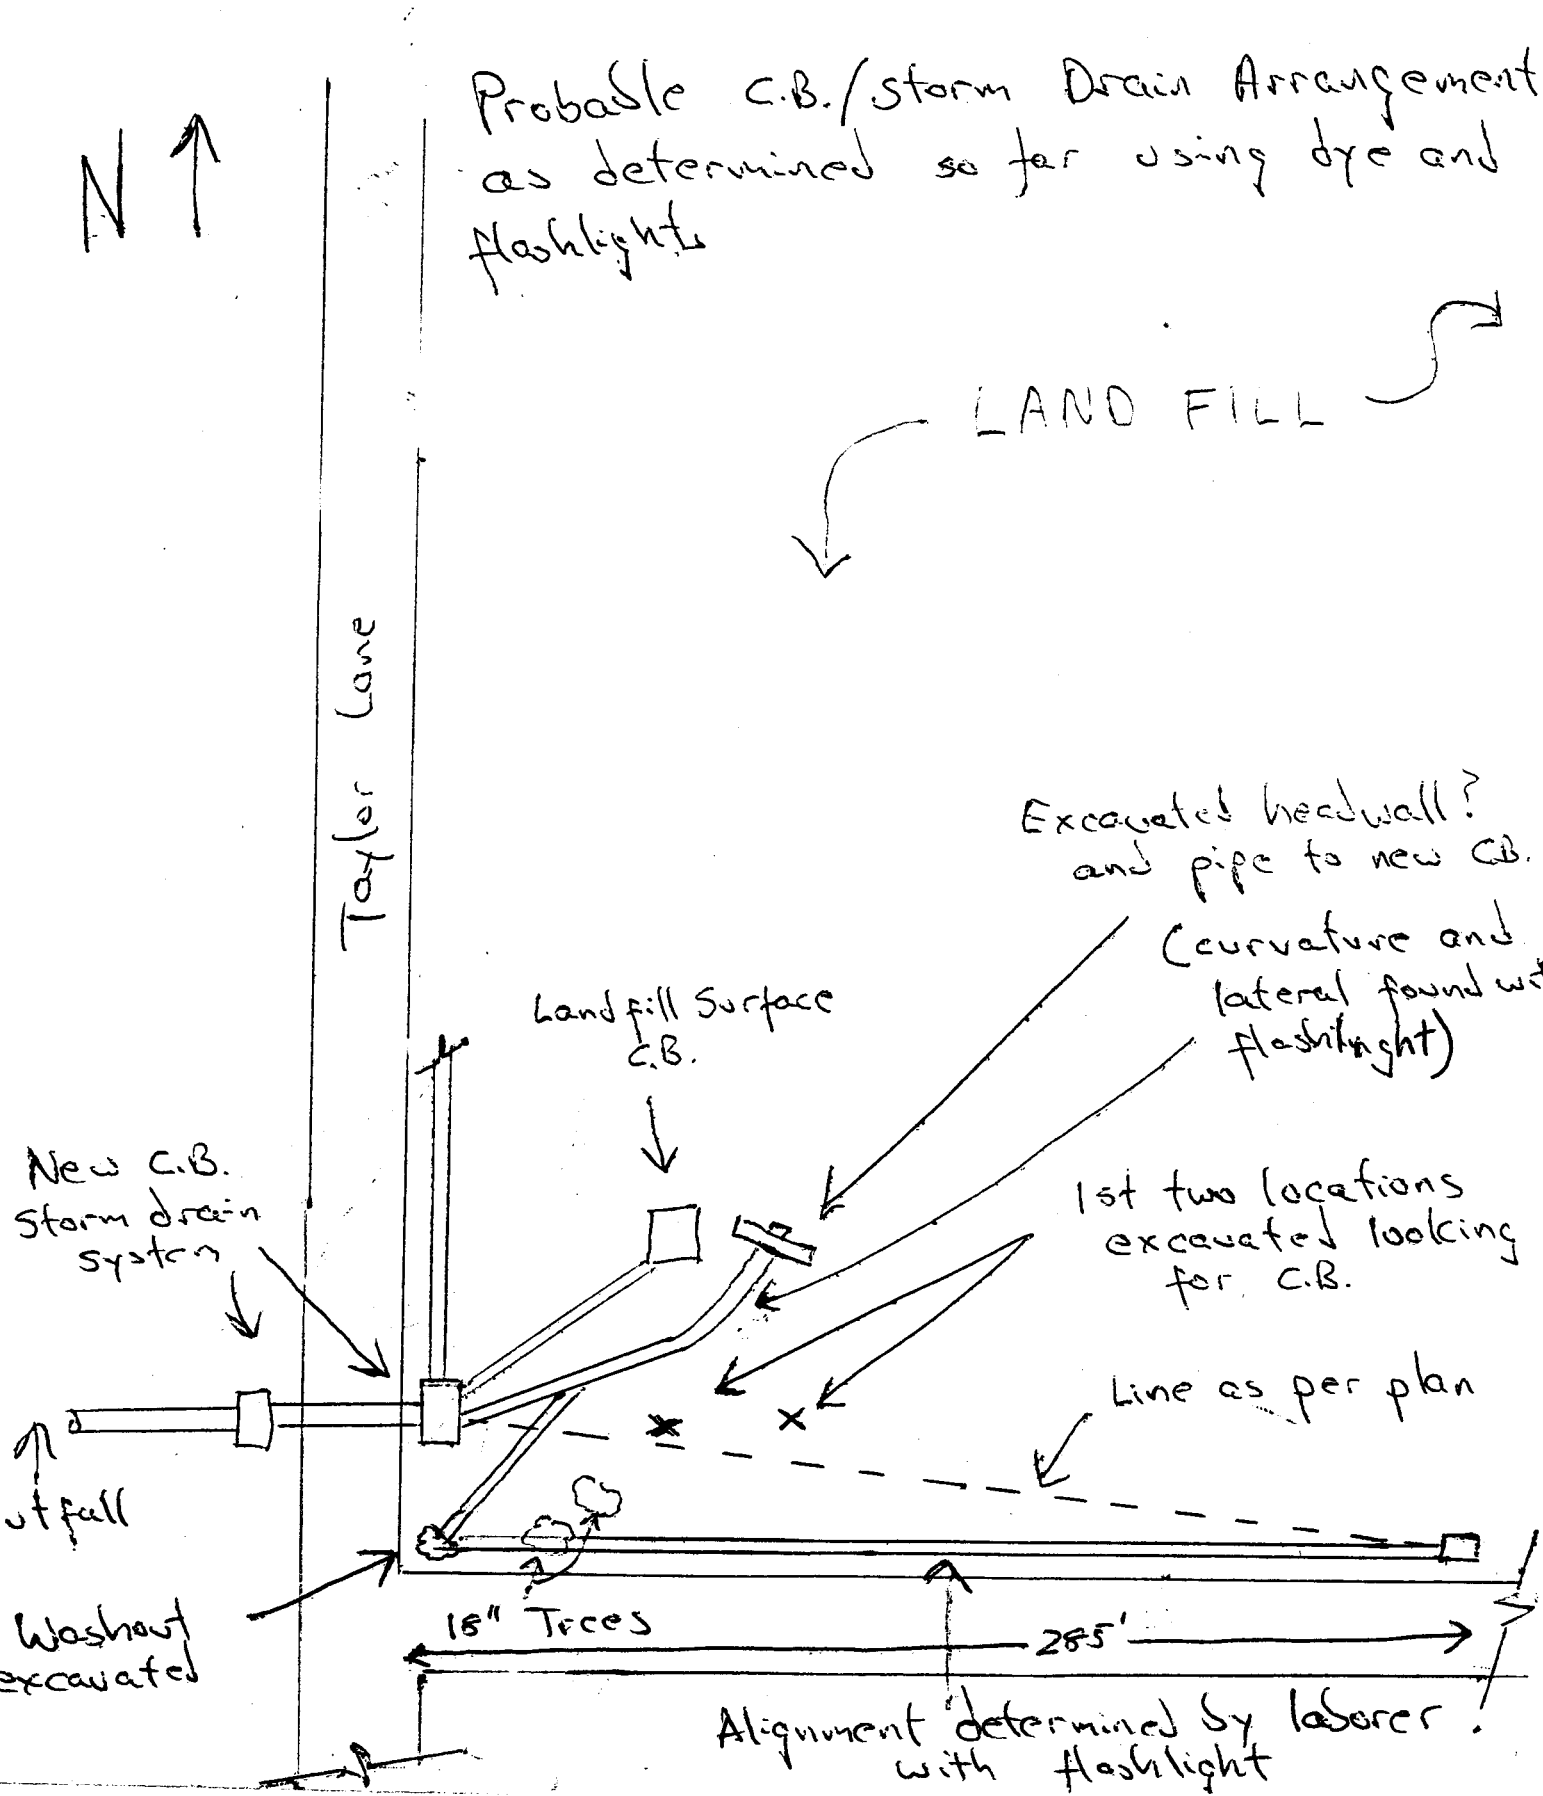 Probable C.B./Storm Drain Arrangement
as determined so far using dye and
flashlights
N
LAND FILL
Taylor Lane
Excavated headwall?
and pipe to new CB.
(curvature and
lateral found wit
flashlight)
Landfill Surface
C.B.
New C.B.
Storm drain
system
1st two locations
excavated looking
for C.B.
Line as per plan
utfall
Washout
excavated
18" Trees
285'
Alignment determined by laborer.
with flashlight